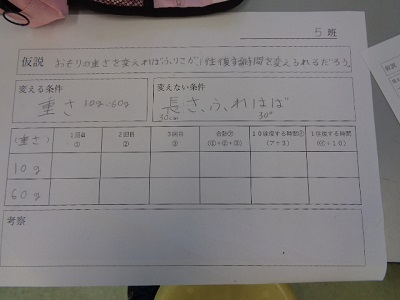 5 班
仮説 おもりの重さを変えればふりこが、1往復する時間を変えられるだろう。
変える条件 変えない条件
重さ 10g、60g 長さ、ふれはば
30cm 30°
(重さ) 1回目 ① 2回目 ② 3回目 ③ 合計⑦ (①+②+③) 10往復する時間④ (⑦÷3) 1往復する時間 (④÷10)
10g
60g
考察